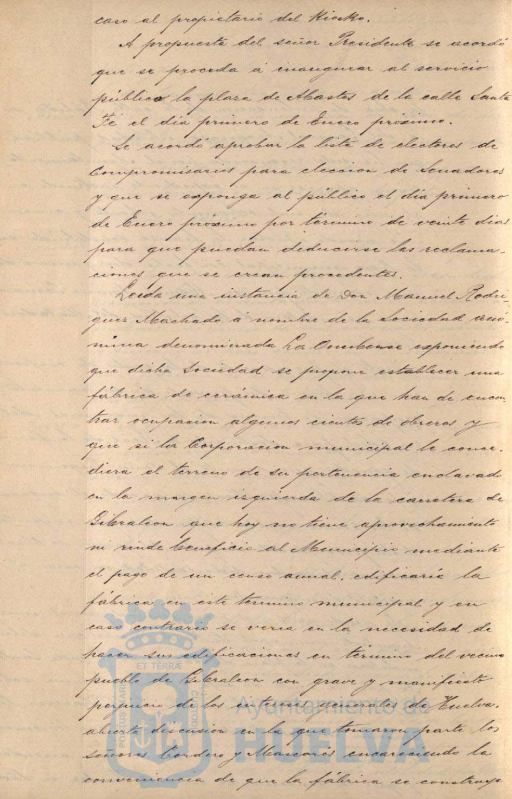 caso al propietario del Kiosko.
A propuesta del señor Presidente se acordó
que se proceda á inaugurar al servicio
público la plaza de Abastos de la calle Santa
Fé el dia primero de Enero próximo.
Se acordó aprobar la lista de electores de
Compromisarios para eleccion de Senadores
y que se exponga al público el dia primero
de Enero próximo por término de veinte dias
para que puedan deducirse las reclama-
ciones que se crean procedentes.
Leida una instancia de Don Manuel Rodri
guez Machado á nombre de la Sociedad anó-
nima denominada La Onubense exponiendo
que dicha Sociedad se propone establecer una
fábrica de cerámica en la que han de encon-
trar ocupacion algunos cientos de obreros y
que si la Corporacion municipal le conce-
diera el terreno de su pertenencia enclavado
en la margen izquierda de la carretera de
Gibraleon que hoy no tiene aprovechamiento
ni rinde beneficio al Municipio mediante
el pago de un censo anual, edificaría la
fábrica en este termino municipal y en
caso contrario se veria en la necesidad de
hacer sus edificaciones en término del vecino
pueblo de Gibraleon con grave y manifiesto
perjuicio de los intereses generales de Huelva,
abierta discusion en la que tomaron parte los
señores Cordero y encareciendo la
conveniencia de que la fábrica se construya
ET TERRÆ
PORTUS MARIS
CUSTODIA
Ayuntamiento de
HUELVA